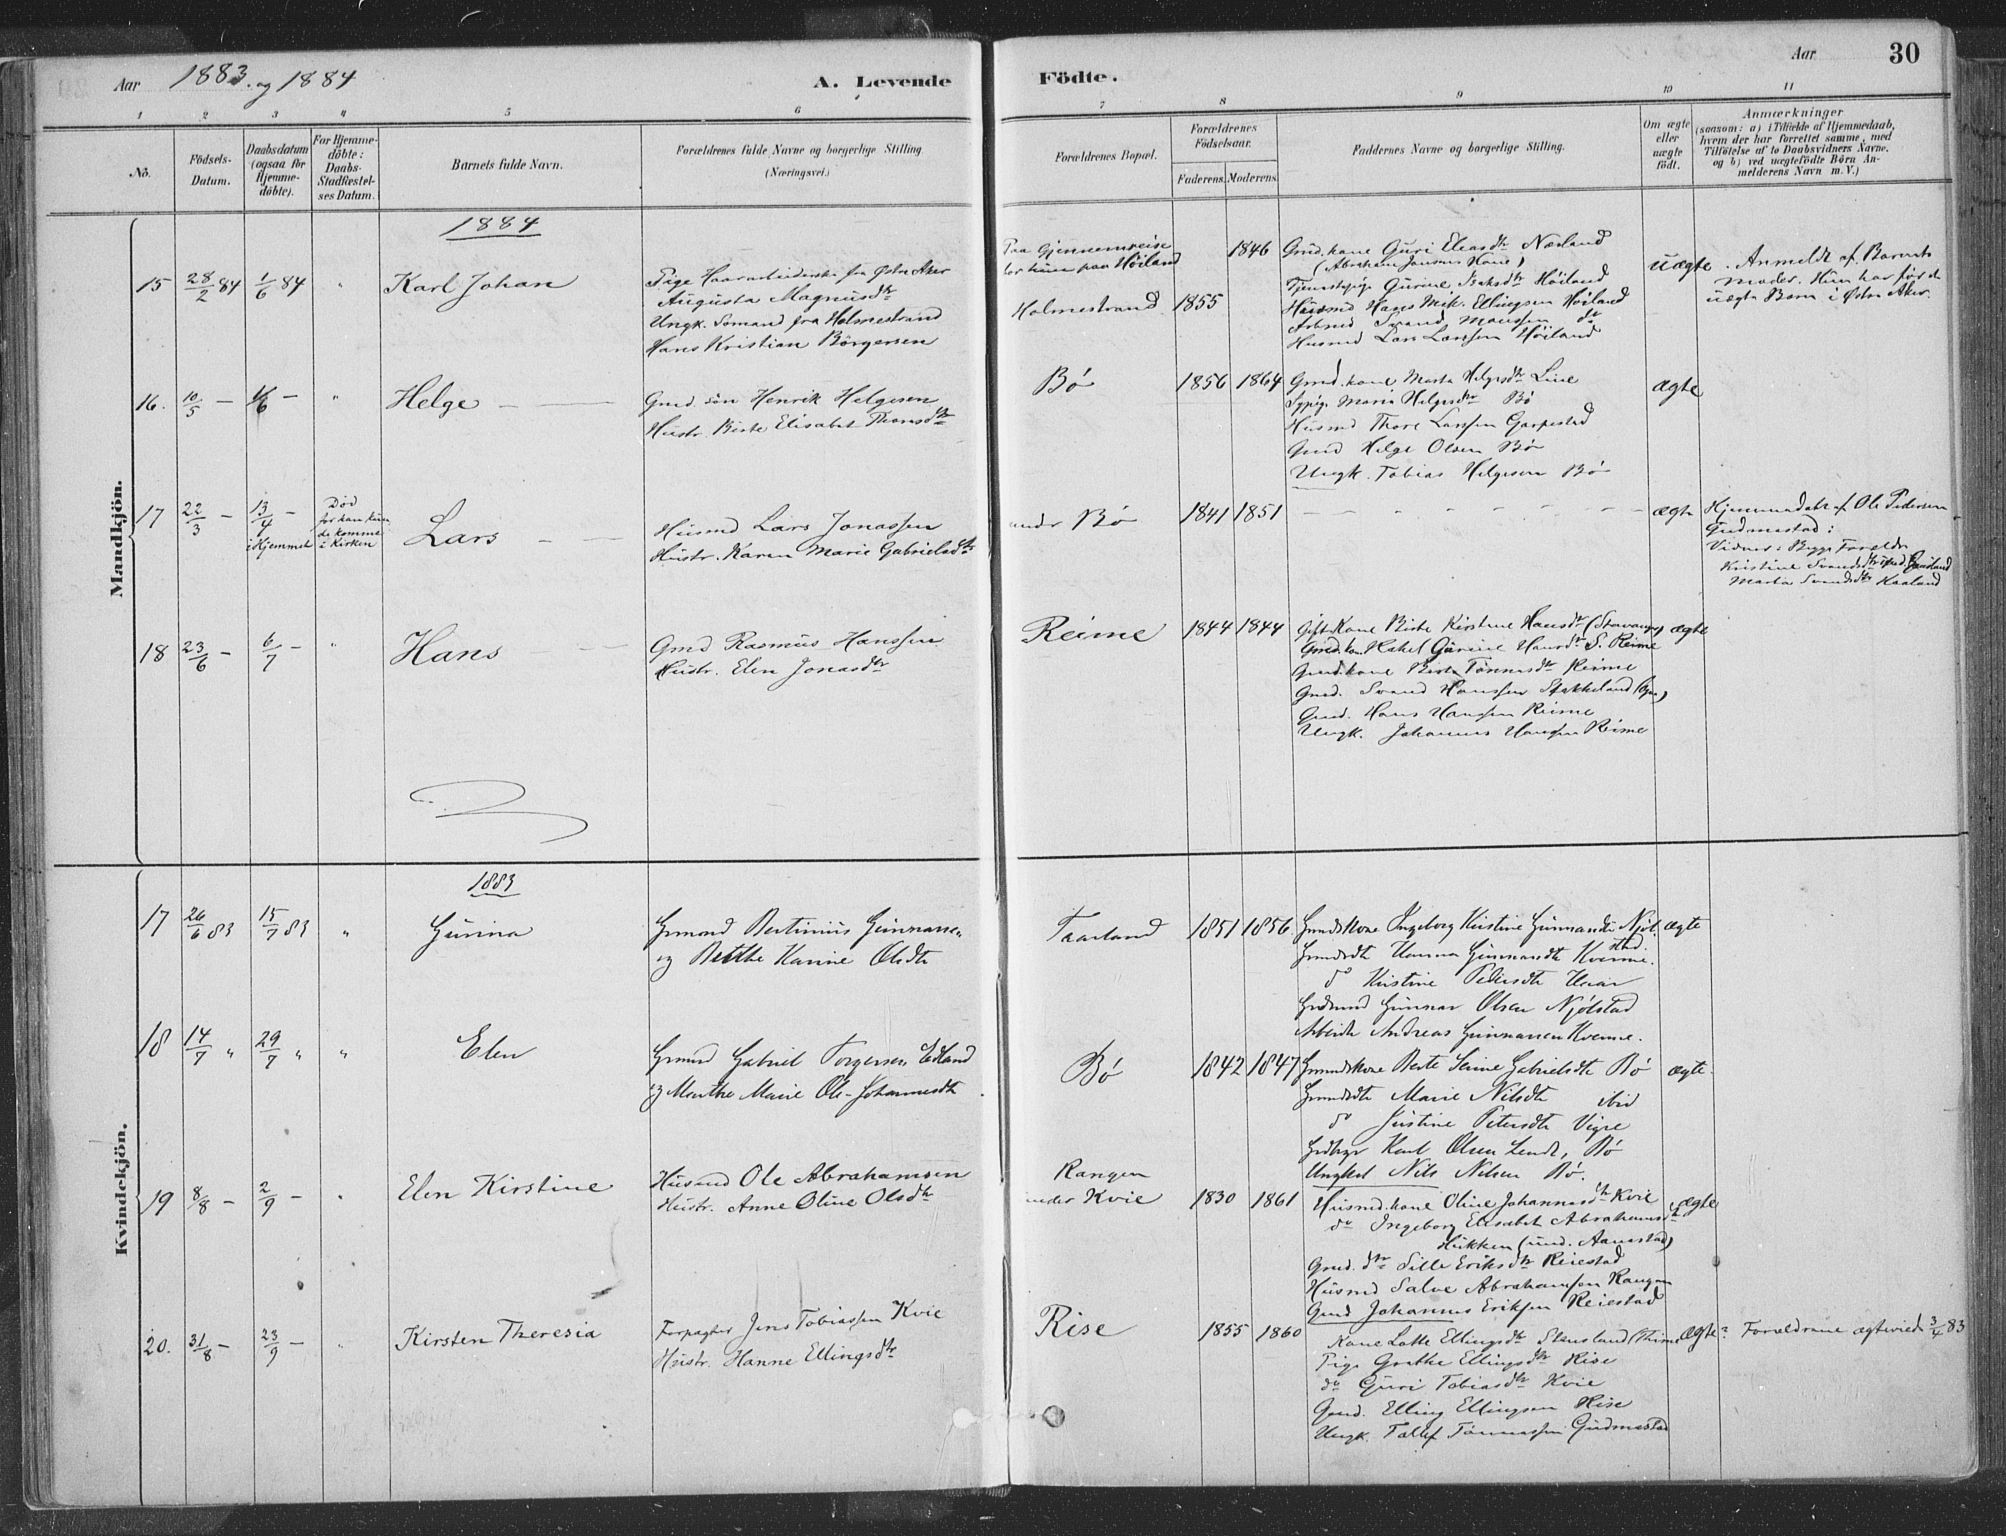 Aar 1883 og 1884
A. Levende Födte.
Aar
30
1 2 3 4 5 6 7 8 9 10 11
No.
Födsels-Datum.
Daabsdatum (ogsaa for Hjemme-döbte).
For Hjemme-döbte: Daabs-Stadfæstel-ses Datum.
Barnets fulde Navn.
Forældrenes fulde Navne og borgerlige Stilling (Næringsvei.)
Forældrenes Bopæl.
Forældrenes Födselsaar.
Faderens. Moderens.
Faddernes Navne og borgerlige Stilling.
Om ægte eller uægte födt.
Anmærkninger
(saasom: a) i Tilfælde af Hjemmedaab,
hvem der har forrettet samme, med
Tilföielse af to Daabsvidners Navne.
og b) ved uægtefödte Börn An-
melderens Navn m. V.)
Mandkjön.
1884
15 28/2 84 1/6 84 " Karl Johan
Pige Haararbeiderske fra Østre Aker
Augusta Magnusdtr
Ungk. Sømand fra Holmestrand
Hans Kristian Börgersen
Paa Gjennemreise
paa Höiland
Holmestrand 1855 1846
Gmd. kone Guri Eliasdtr Nærland
Tjenestepige Gurine Isaksdtr Höiland
Husmd Hans Mik. Ellingsen Höiland
Svend Monssen do
Husmd Lars Larssen Höiland
uægte. Anmeldt af Barnets
Moder. Hun har før et
uægte Barn i Østre Aker.
16. 10/5 — 1/6 — " Helge
Gmd. sön Henrik Helgesen
Hustr. Berte Elisabet Thoresdtr
Bø 1856 1864
Gmd. kone Marta Helgesdtr Line
Sypige Maria Helgesdtr Bö
Husmd Thore Larssen Garpestad
Gmd Helge Olsen Bö
Ungk. Tobias Helgesen Bö
ægte
17 22/3 — 13/4 — i Hjemmet
Död før han kunde komme i Kirken
Lars
Husmd Lars Jonassen
Hustr. Karen Marie Gabrielsdtr
under Bø 1841 1851
ægte
Hjemmedøbt af Ole Pedersen
Gudmestad:
Vidner: Begge Forældre
Kristine Svendsdtr
Marta Svendsdtr Haaland
18 23/6 — 6/7 — " Hans
Gmd Rasmus Hanssen
Hustr. Elen Jonasdtr
Reime 1844 1844
Gift Kone Berte Kirstine Hansdtr (Stavanger)
Gmd. kone Gurine Hansdtr S. Reime
Gmd. kone Berta Tönnesdtr Reime
Gmd. Svend Hanssen Stokkeland
Gmd. Hans Hanssen Reime
Ungk. Johannes Hanssen Reime
ægte
Kvindekjön.
1883
17 26/6 83 15/7 83 " Gurina
Grmand Bertinius Gunnarsen
og Berthe Karine Olsdtr
Taarland 1851 1856
Grmandskone Ingeborg Kristine Gunnarsdtr Njølstad.
Grmandsdtr Hanna Gunnarsdtr Kvemme.
do Kristine Pedersdtr Haar
Grdmand Gunnar Olsen Njølstad
Arbeider Andreas Gunnarsen Kvemme.
ægte
18 14/7 " 29/7 " " Elen
Grmand Gabriel Torgersen Edland
og Marthe Marie Ole-Johannesdtr
Bø 1842 1847
Grmandskone Berte Serine Gabrielsdtr Bø
Grmandsdtr Marie Nilsdtr ibid
do Justine Petersdtr Vigre
Karl Olsen Lende, Bø
Ungkarl Nils Nilsen Bø.
ægte.
19 8/8 — 2/9 — " Elen Kirstine
Husmd Ole Abrahamsen
Hustr. Anne Oline Olsdtr
Rangen
under Kvie 1830 1861
Husmd. kone Oline Johannesdtr Kvie
do Ingeborg Elisabet Abrahamsdtr
Hukken (und. Aanestad)
Gmd. dtr Sille Eriksdtr Reiestad
Husmd Salve Abrahamsen Rangen
Gmd Johannes Eriksen Reiestad
ægte
20. 31/8 — 23/9 — " Kirsten Theresia
Forpagter Jens Tobiassen Kvie
Hustr. Hanne Ellingsdtr
Rise 1855 1860
Kone Lotte Ellingsdtr Stensland (Thime)
Pige Grethe Ellingsdtr Rise
do Guri Tobiasdtr Kvie
Gmd. Elling Ellingsen Rise
Ungk. Tollef Tönnessen Gudmestad
Ægte? Forældrene ægteviede 3/4 83